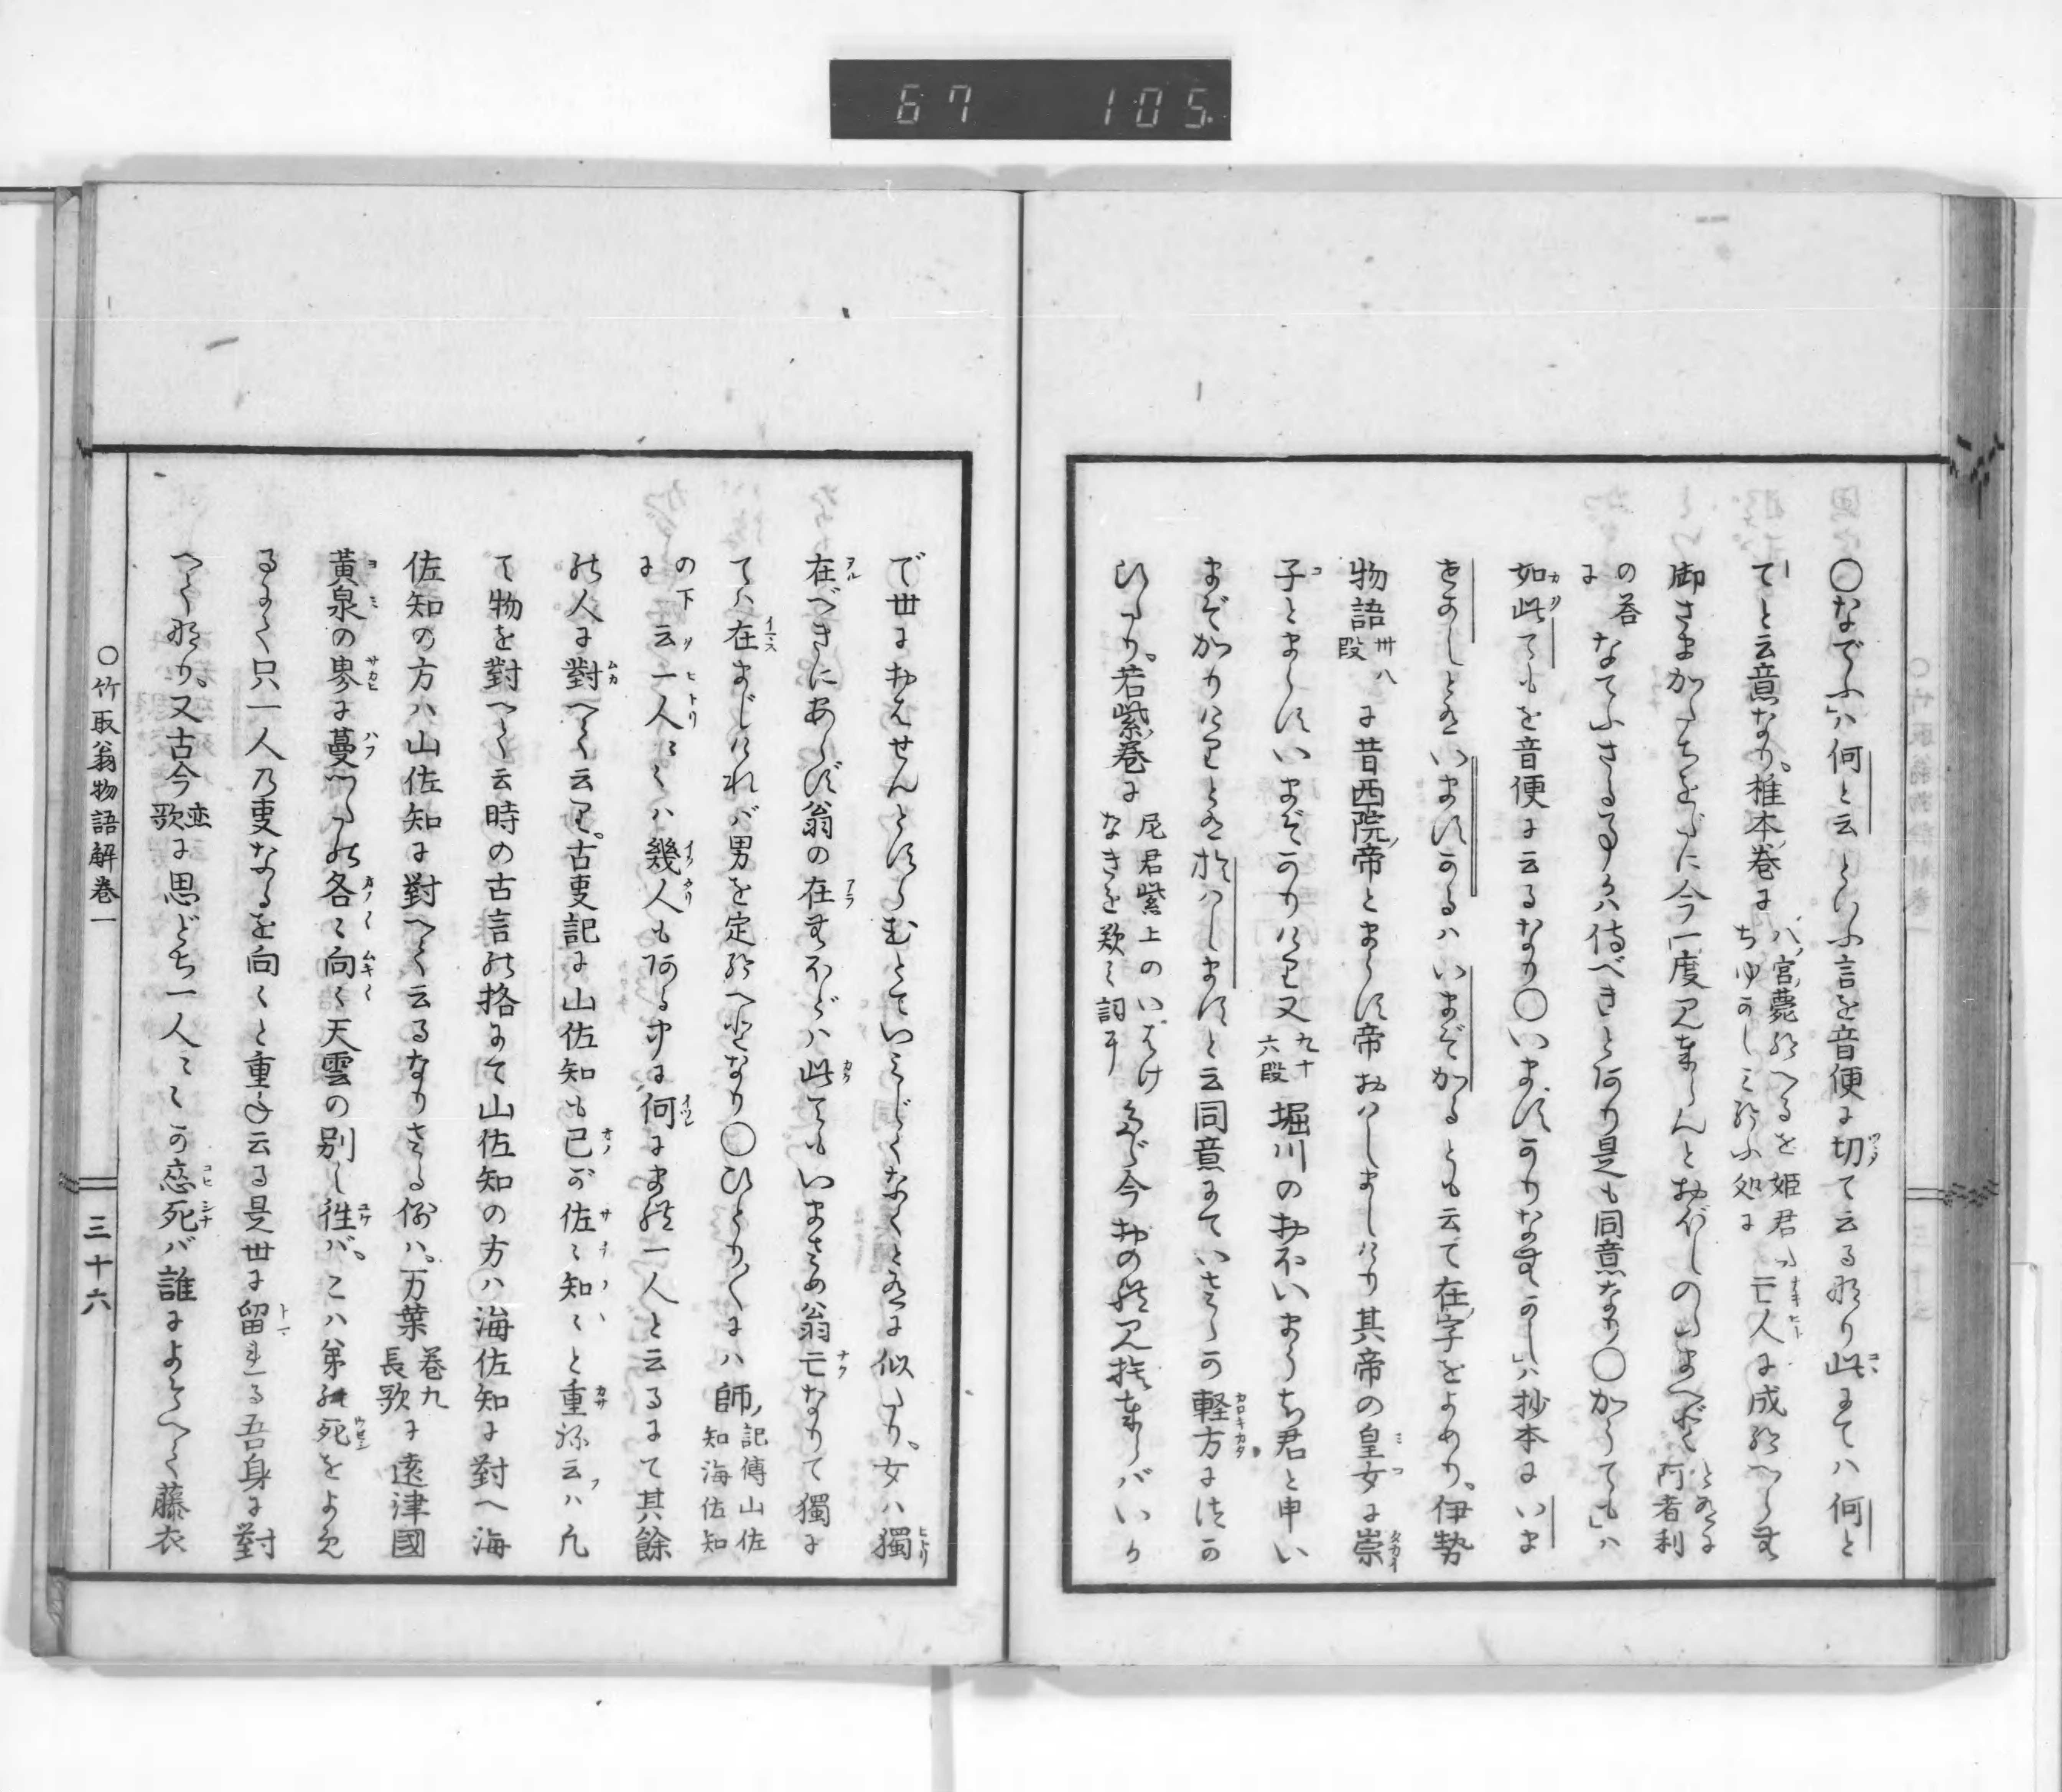 67 105
〇なでふハ何と云といふ言を音便に切て云るなり此にてハ何と
てと云意なり。椎本巻に八ノ宮薨給へるを姫君ハ亡人に成給へらむ
ちゆかしみ給ふ処に
御さまかたちをだに今一度見奉らんとおぼしのたまへど とあるに阿者利
の答になでふさる事か侍べきとあり是も同意なり〇かくても」ハ
如此てもを音便に云るなり〇いますかりなむかし」ハ抄本にいま
せかしとありいますかるハいまぞかるとも云て在ノ字をよめり。伊勢
物語卅八段に昔西院ノ帝とまうす帝おハしましけり其帝の皇女に崇
子とまうすいまぞかりけり又九十六段堀川のおほいまうち君と申い
まぞかりけりとあり おハしますと云同意にていさゝか軽方につか
ひたり。若紫ノ巻に尼君紫上のいはけなきを歎く詞ニたゞ今おのれ見捨奉らバいか
で世におはせんとすらむとていみじくなくとあるに似たり。女ハ獨
在べきにあらず翁の在むほどハ此てもいまさめ翁亡なりて獨に
てハ在まじければ男を定給へとなり〇ひとり〱にハ師ノ記傳山佐知海佐知
の下に云一人ミミハ幾人もある中に何にまれ一人と云るにて其餘
の人に對へて云り。古事記に山佐知も己が佐々知々と重ね云ハ凡
て物を對へて云時の古言の格にて山佐知の方ハ海佐知に對へ海
佐知の方ハ山佐知に對へて云るなりさる例ハ。万葉巻九長歌に遠津國
黄泉の界に蔓つたの各々向々天雲の別し徃バ。こハ弟の死をよめ
るにて只一人乃事なるを向々と重ねて云る是世に留れる吾身に對
へてなり。又古今恋歌に思どち一人ミミが恋死バ誰によそへて藤衣
〇竹取翁物語解巻一
三十六